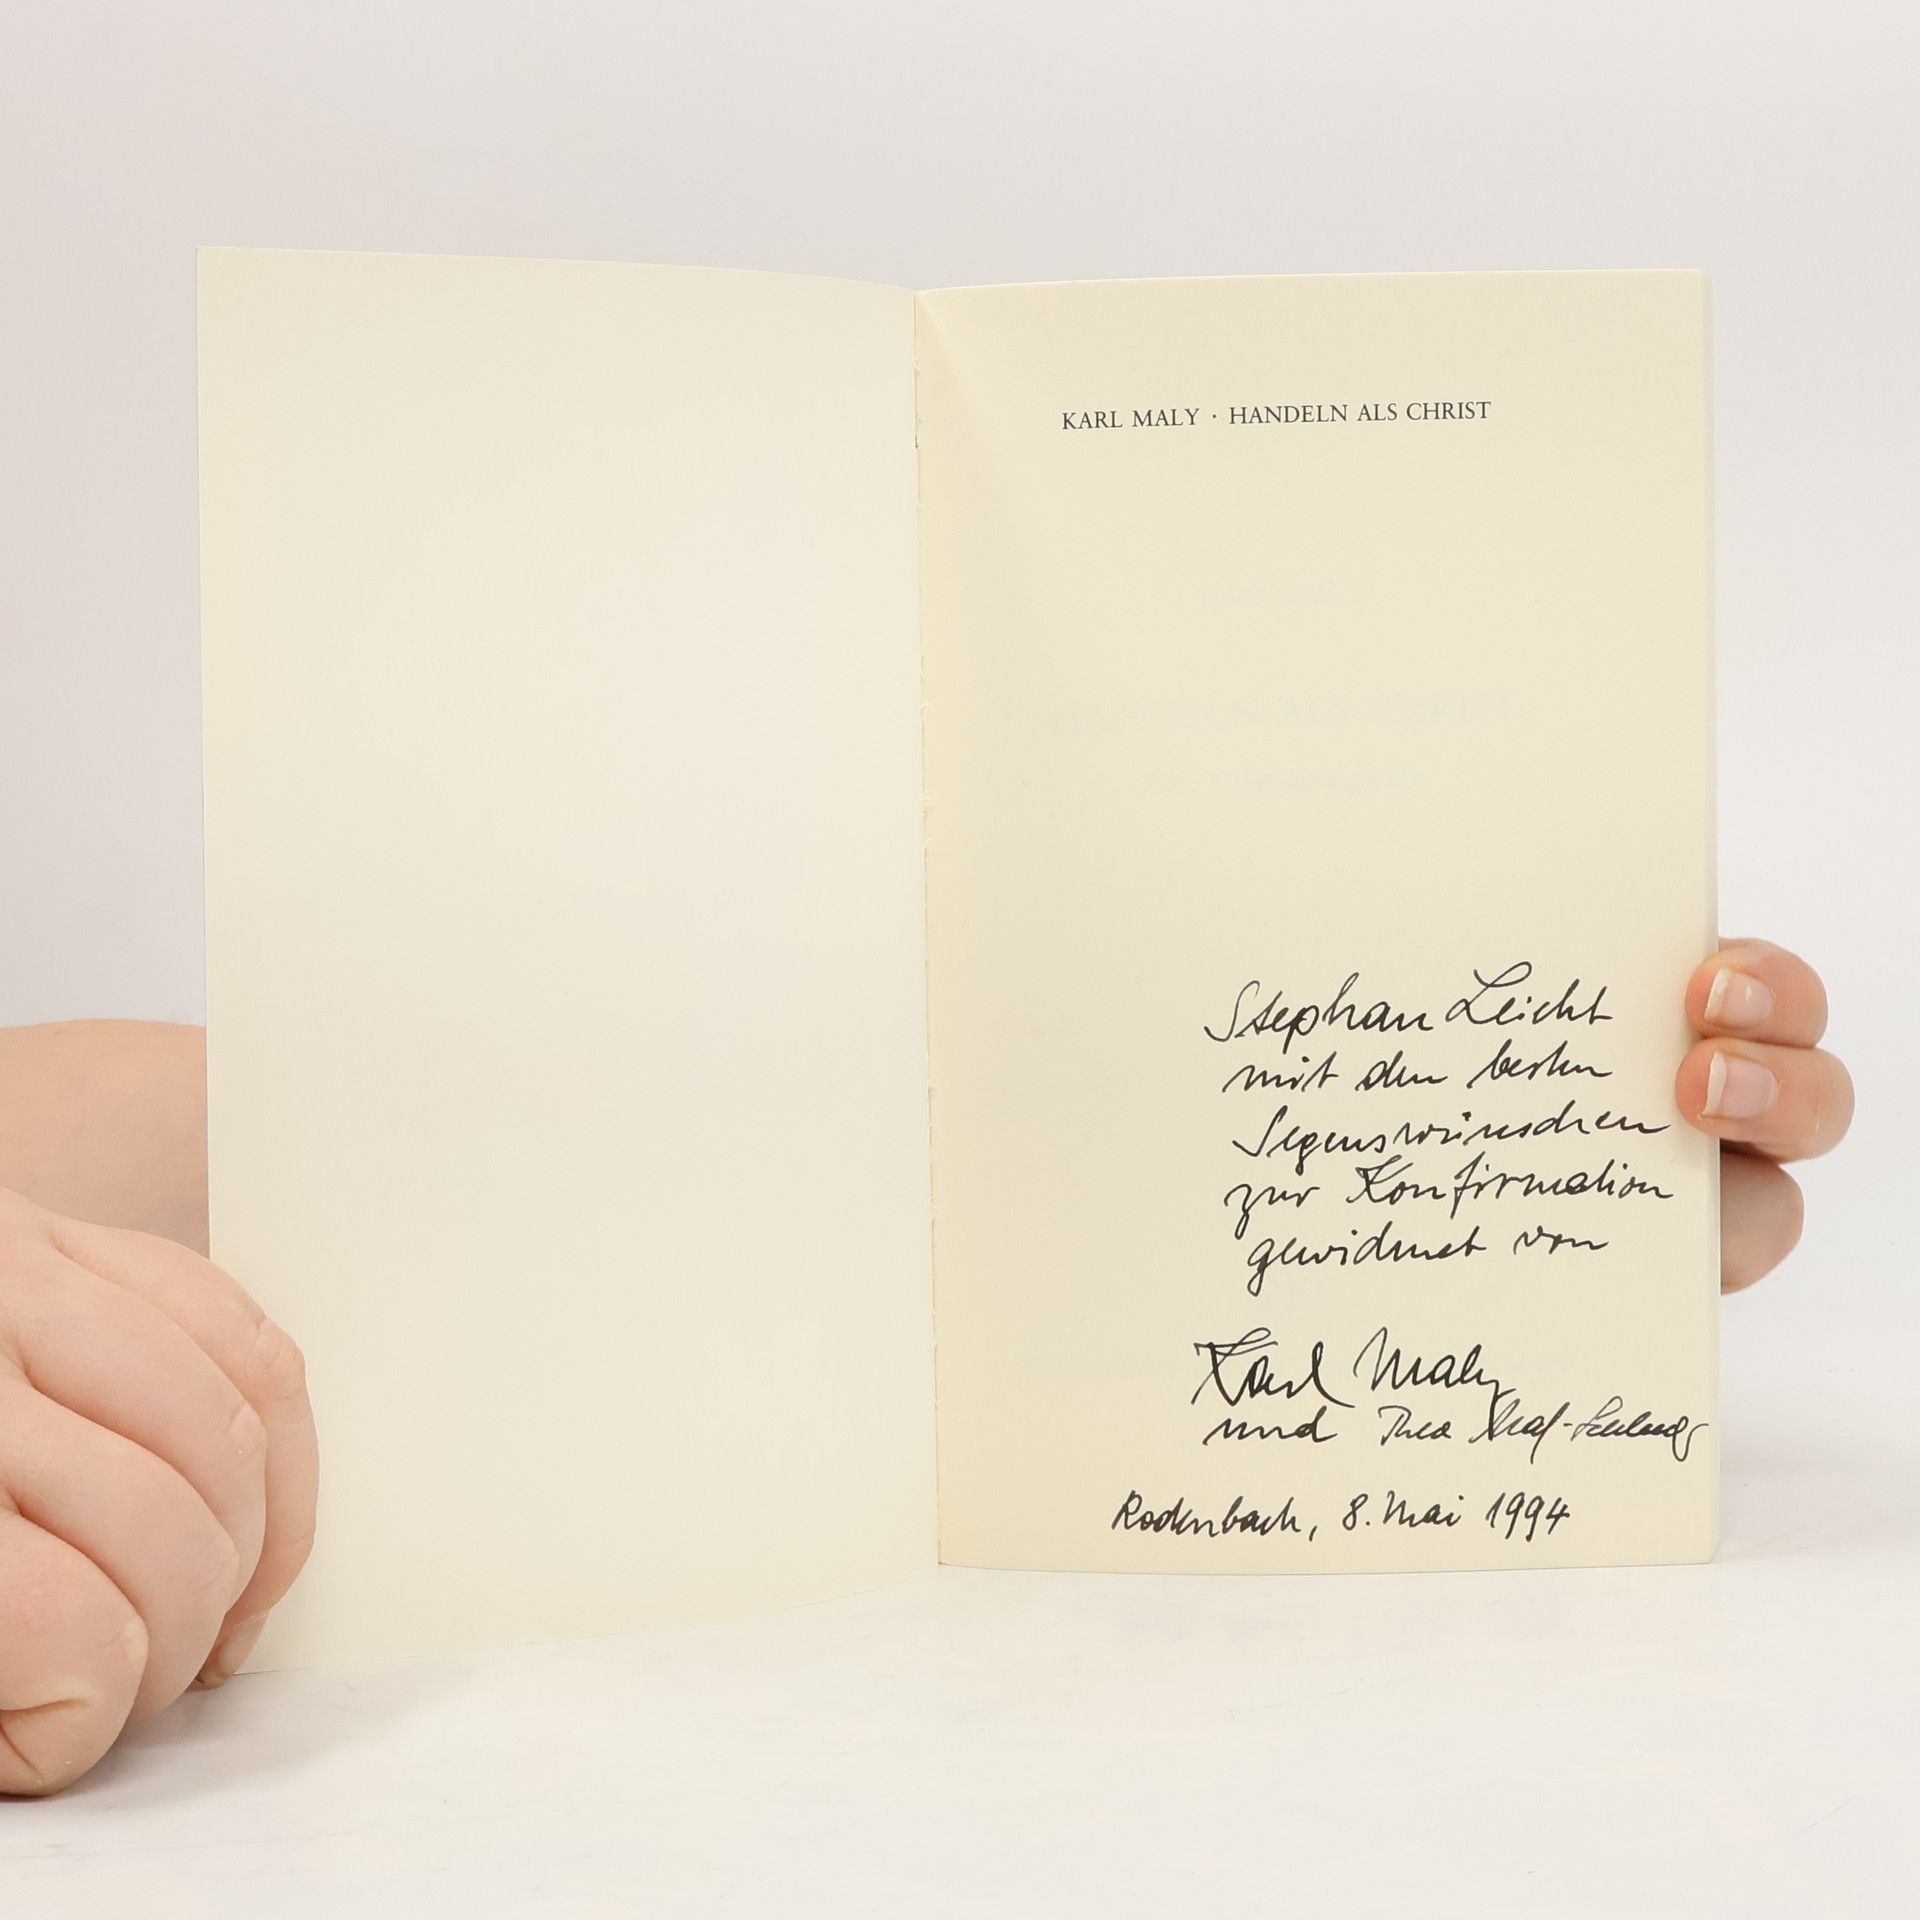 KARL MALY · HANDELN ALS CHRIST
HANDELN ALS CHRIST
Stephan Leicht
mit den besten
Segenswünschen
zur Konfirmation
gewidmet von
Karl Maly
und Thea
Rodenbach, 8. Mai 1994